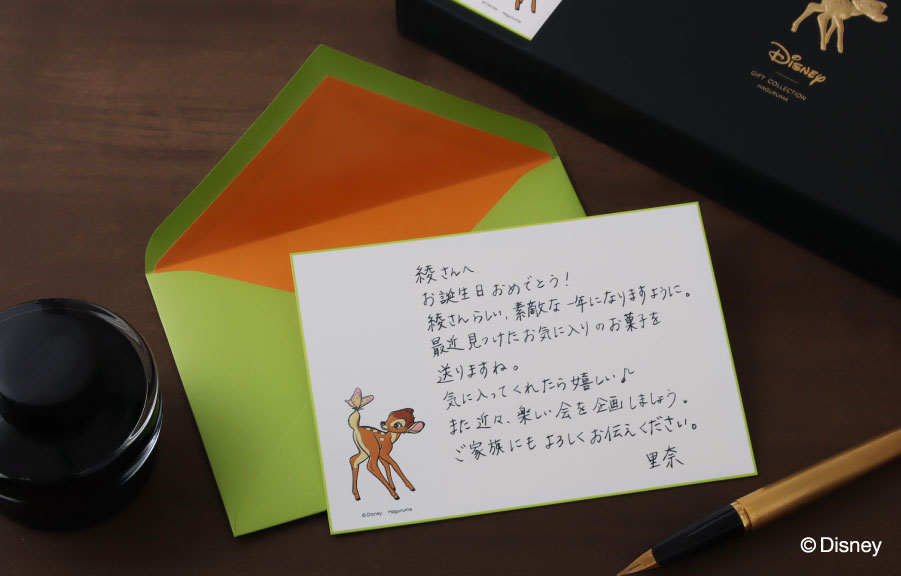 ©Disney Hagurumа
Disney
GIFT COLLECTION
HAGURUMA
綾さんへ
お誕生日おめでとう！
綾さんらしい、素敵な一年になりますように。
最近見つけたお気に入りのお菓子を
送りますね。
気に入ってくれたら嬉しい♪
また近々、楽しい会を企画しましょう。
ご家族にもよろしくお伝えください。
里奈
©Disney Haguruma
©Disney